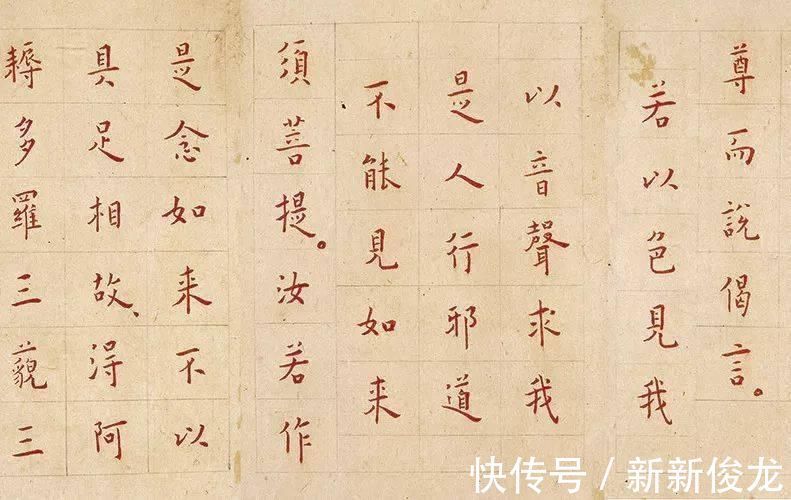 尊而說偈言。
若以色見我
以音聲求我
是人行邪道
不能見如来
須菩提。汝若作
是念如来不以
具足相故、得阿
耨多羅三藐三
快传号 / 新新俊龙